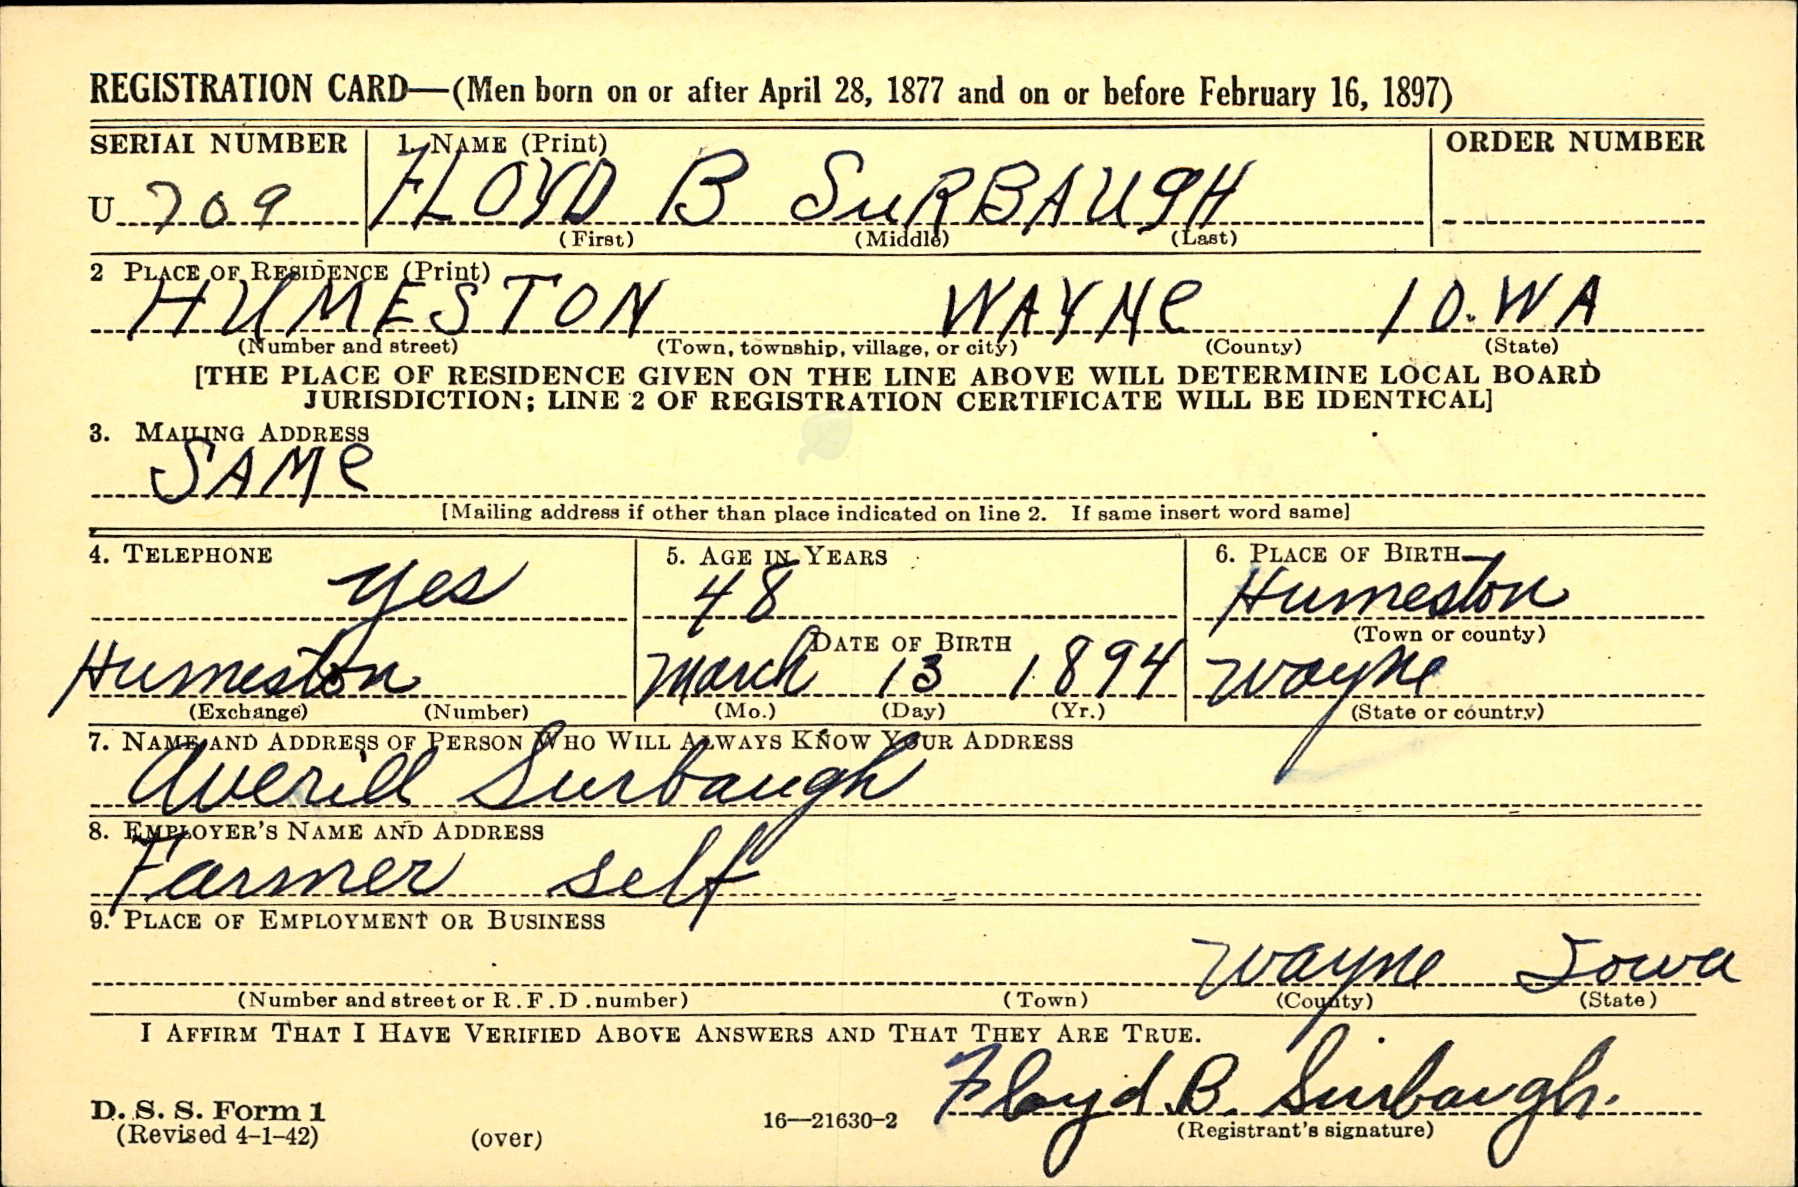 REGISTRATION CARD—(Men born on or after April 28, 1877 and on or before February 16, 1897)
SERIAL NUMBER 1. NAME (Print) ORDER NUMBER
U 709 FLOYD B SuRBAUGH
(First) (Middle) (Last)
2 PLACE OF RESIDENCE (Print)
HUMESTON WAYNe IO.WA
(Number and street) (Town, township, village, or city) (County) (State)
[THE PLACE OF RESIDENCE GIVEN ON THE LINE ABOVE WILL DETERMINE LOCAL BOARD
JURISDICTION; LINE 2 OF REGISTRATION CERTIFICATE WILL BE IDENTICAL]
3. MAILING ADDRESS
SAMe
[Mailing address if other than place indicated on line 2. If same insert word same]
4. TELEPHONE 5. AGE IN YEARS 6. PLACE OF BIRTH
yes 48 Humeston
DATE OF BIRTH (Town or county)
Humeston March 13 1894 Wayne
(Exchange) (Number) (Mo.) (Day) (Yr.) (State or country)
7. NAME AND ADDRESS OF PERSON WHO WILL ALWAYS KNOW YOUR ADDRESS
Averill Surbaugh
8. EMPLOYER'S NAME AND ADDRESS
Farmer self
9. PLACE OF EMPLOYMENT OR BUSINESS
Wayne Iowa
(Number and street or R. F. D. number) (Town) (County) (State)
I AFFIRM THAT I HAVE VERIFIED ABOVE ANSWERS AND THAT THEY ARE TRUE.
Floyd B. Surbaugh.
D. S. S. Form 1
(Revised 4-1-42) (over) 16—21630-2 (Registrant's signature)